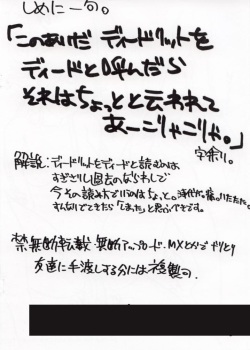 しめに一句。
「このあいだ ディードリットを
ディードと呼んだら
それはちょっとと云われて
あーごりゃごりゃ。」
字余り。
解説:ディードリットをディードと読むのは
すぎさりし過去のならわしで
今その読み方でいうのはちょっと。時代が
そんなんでてきたら「しまった」と思うべきです。
禁無断転載・無断アップロード・MXとかでやりとり
友達に手渡しする分には